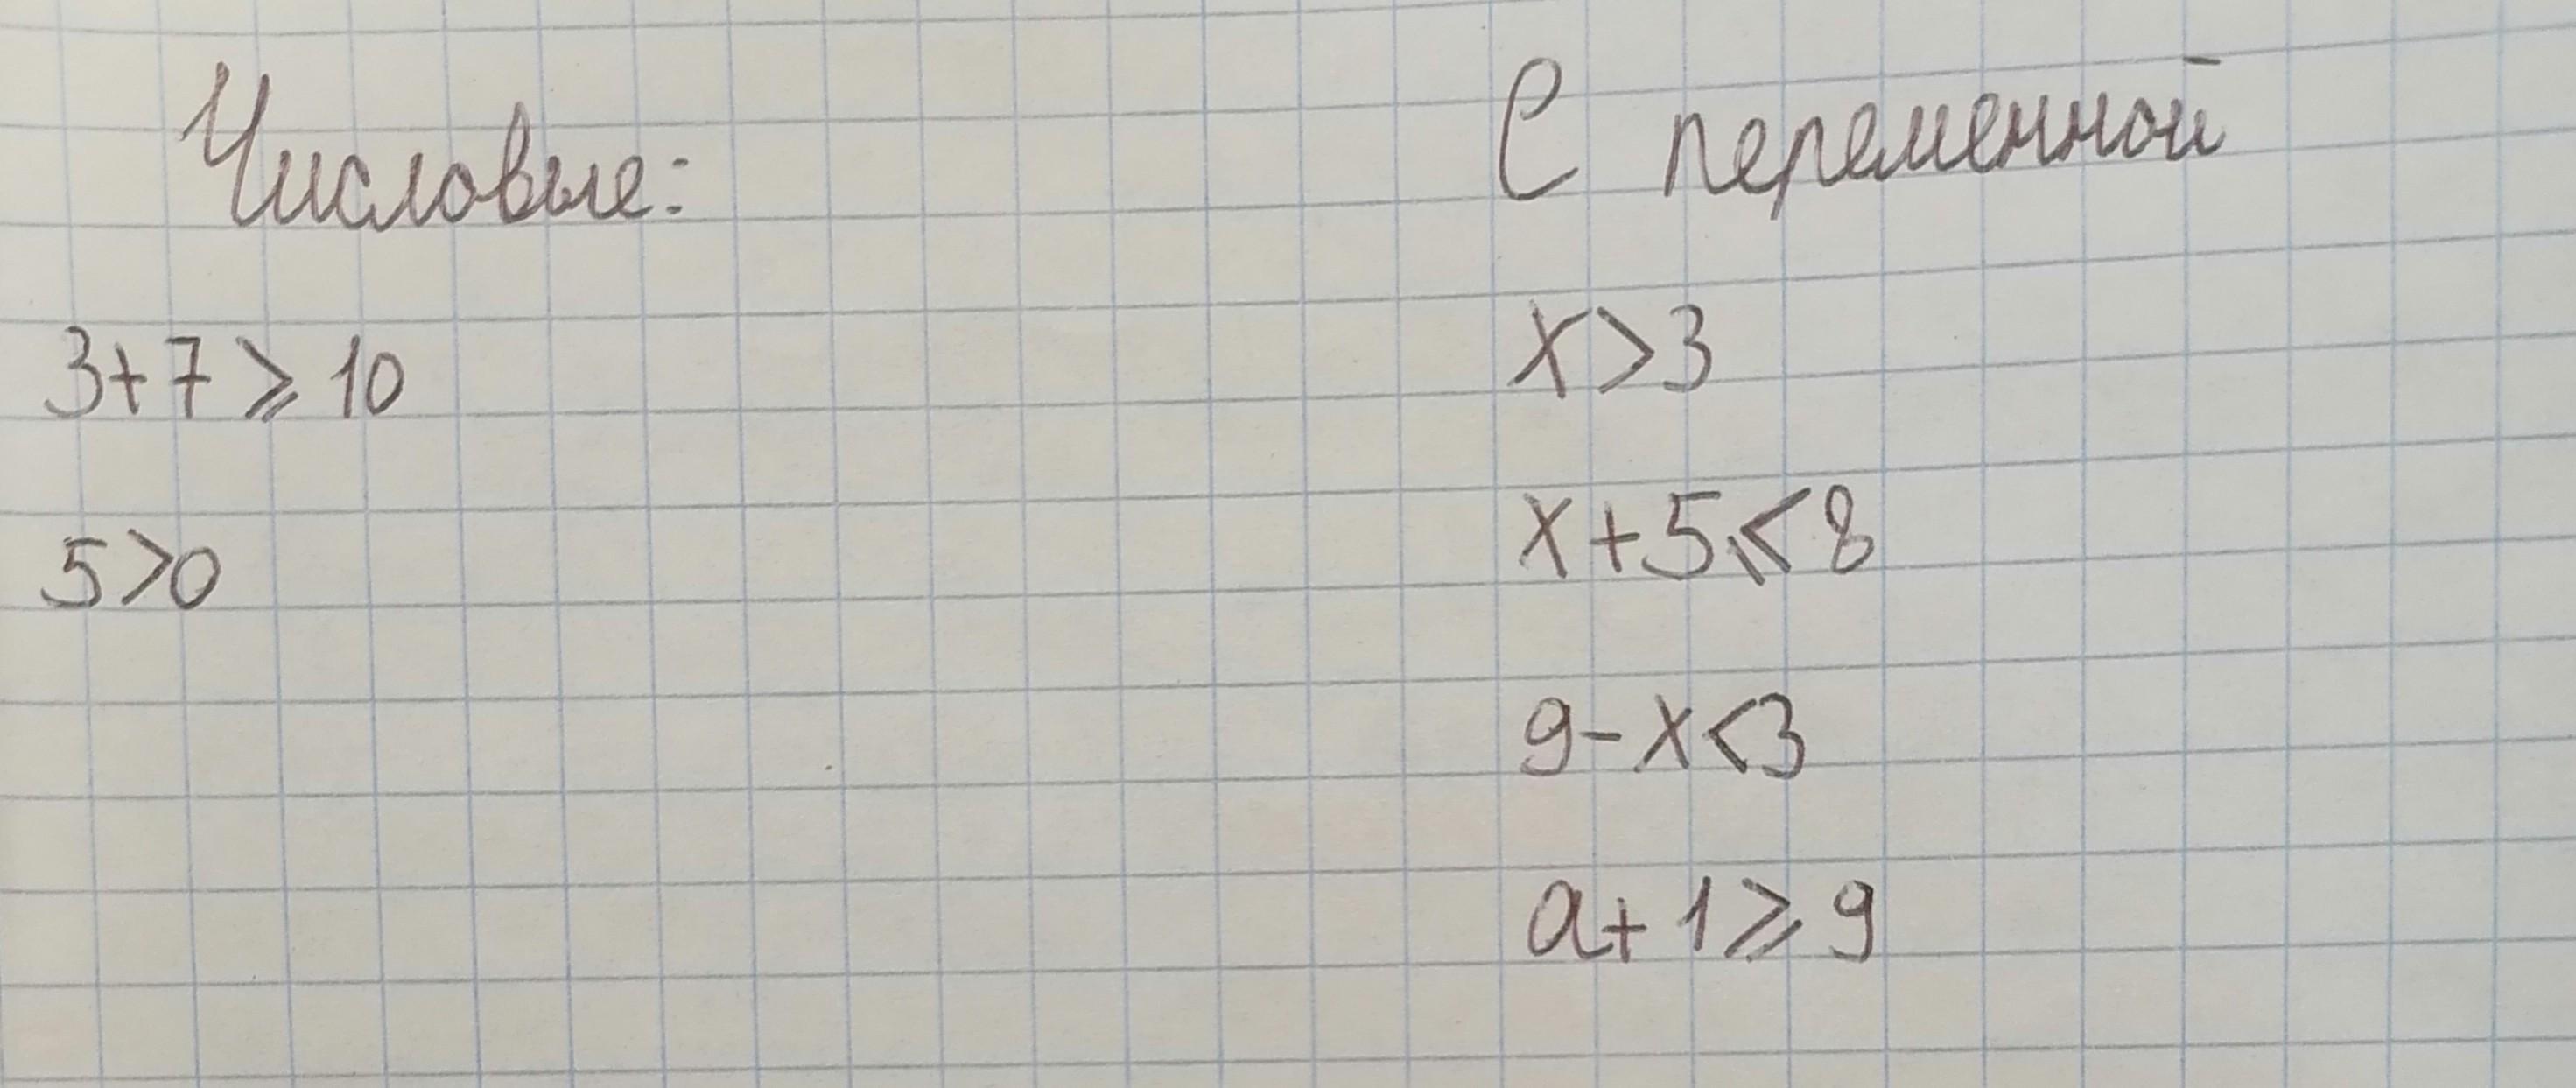 Числовые:
С переменной
3+7⩾10
x>3
5>0
x+5⩽8
9-x<3
a+1⩾9